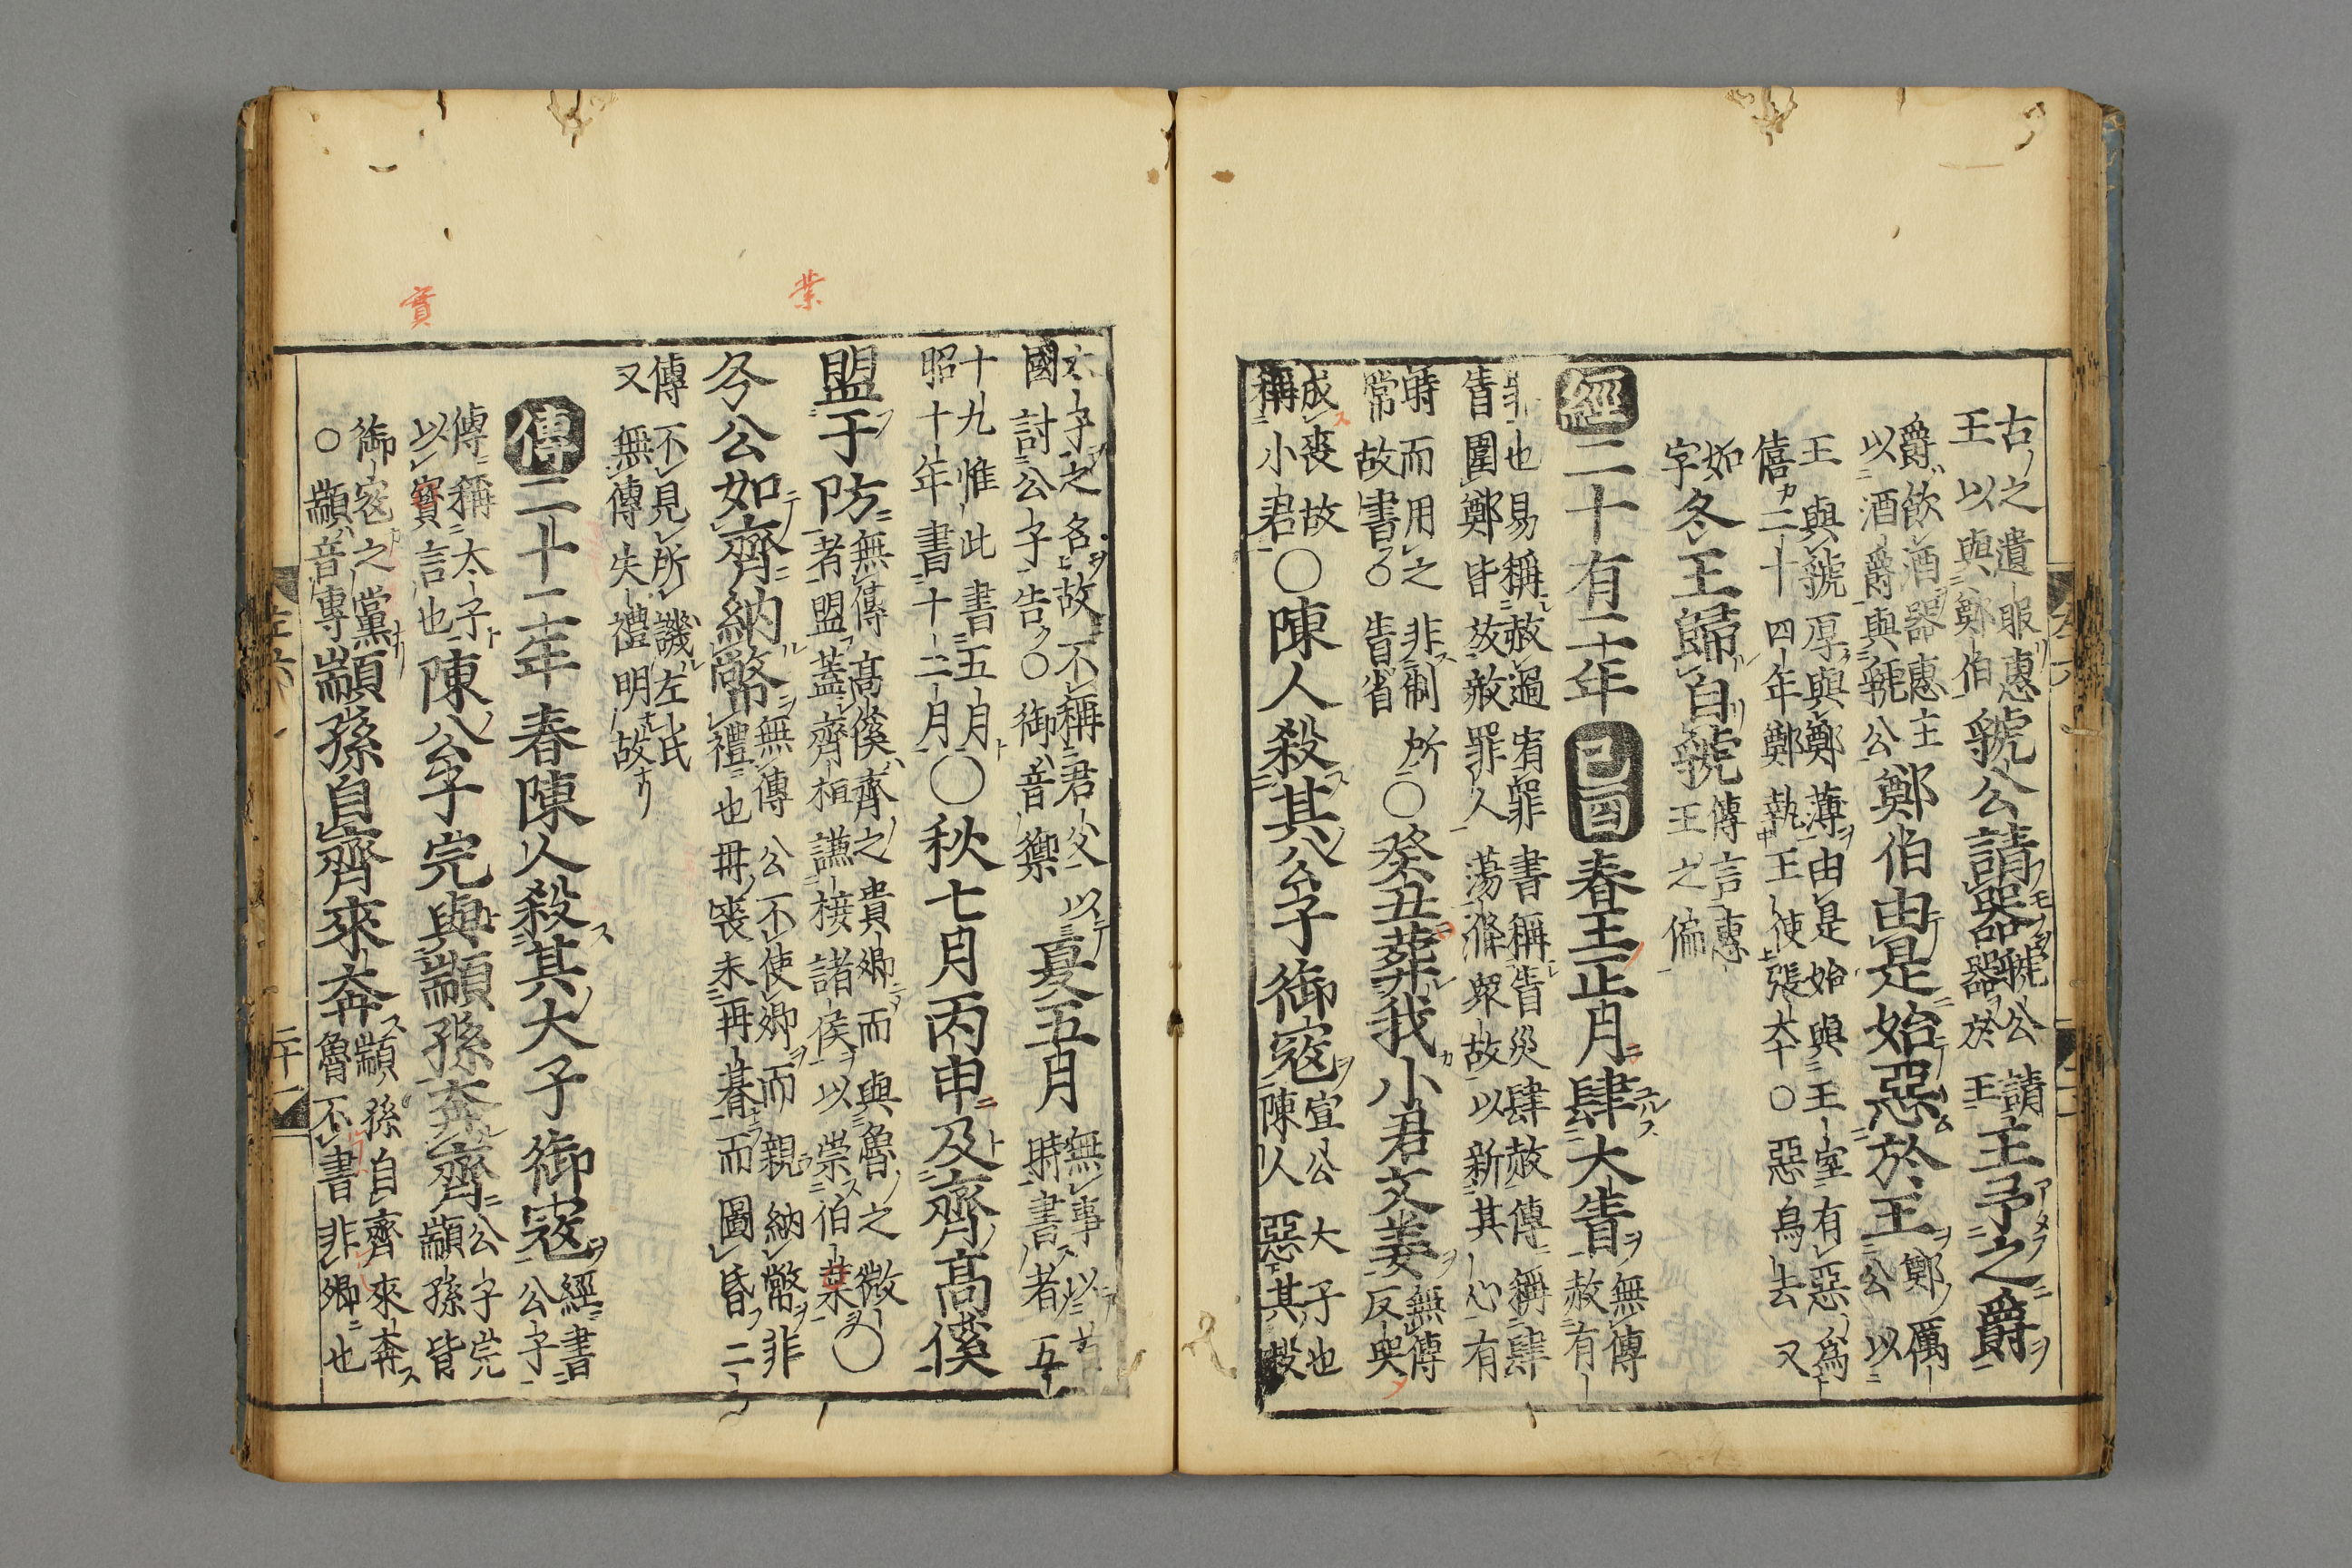 古之遺服惠
王以與鄭伯
虢公請器
虢公請
器於王
王予之爵
爵飲酒器惠王
以酒爵與虢公
鄭伯由是始惡於王
鄭厲
公以
王與虢厚與鄭薄由是始與王室有惡爲
僖二十四年鄭執王使張本〇惡烏去又
如
字
冬王歸自虢
傳言惠
王之偏
經二十有二年
己酉
春王正月肆大眚
無傳
赦有
罪也易稱赦過宥罪書稱眚災肆赦傳稱肆
眚圍鄭皆放赦罪人蕩滌衆故以新其心有
時而用之非制所
常故書〇眚省
〇癸丑葬我小君文姜
無傳
反哭
成喪故
稱小君
〇陳人殺其公子御寇
宣公大子也
陳人惡其殺
太子之名故不稱君父以
國討公子告〇御音禦
夏五月
無事以
時書者五
十九惟此書五月
昭十年書十二月
〇秋七月丙申及齊高傒
盟于防
無傳高傒齊之貴卿而與魯之微
者盟蓋齊桓謙接諸侯以崇伯業
〇
冬公如齊納幣
無傳公不使卿而親納幣非
禮也母喪未再朞而圖昏二
傳不見所譏左氏
又無傳失禮明故
傳二十二年春陳人殺其大子御寇
經書
公子
傳稱太子
以實言也
陳公子完與顓孫奔齊
公子完
顓孫皆
御寇之黨
〇顓音專
顓孫自齊來奔
顓孫自齊來奔
魯不書非卿也
二十一
業
實